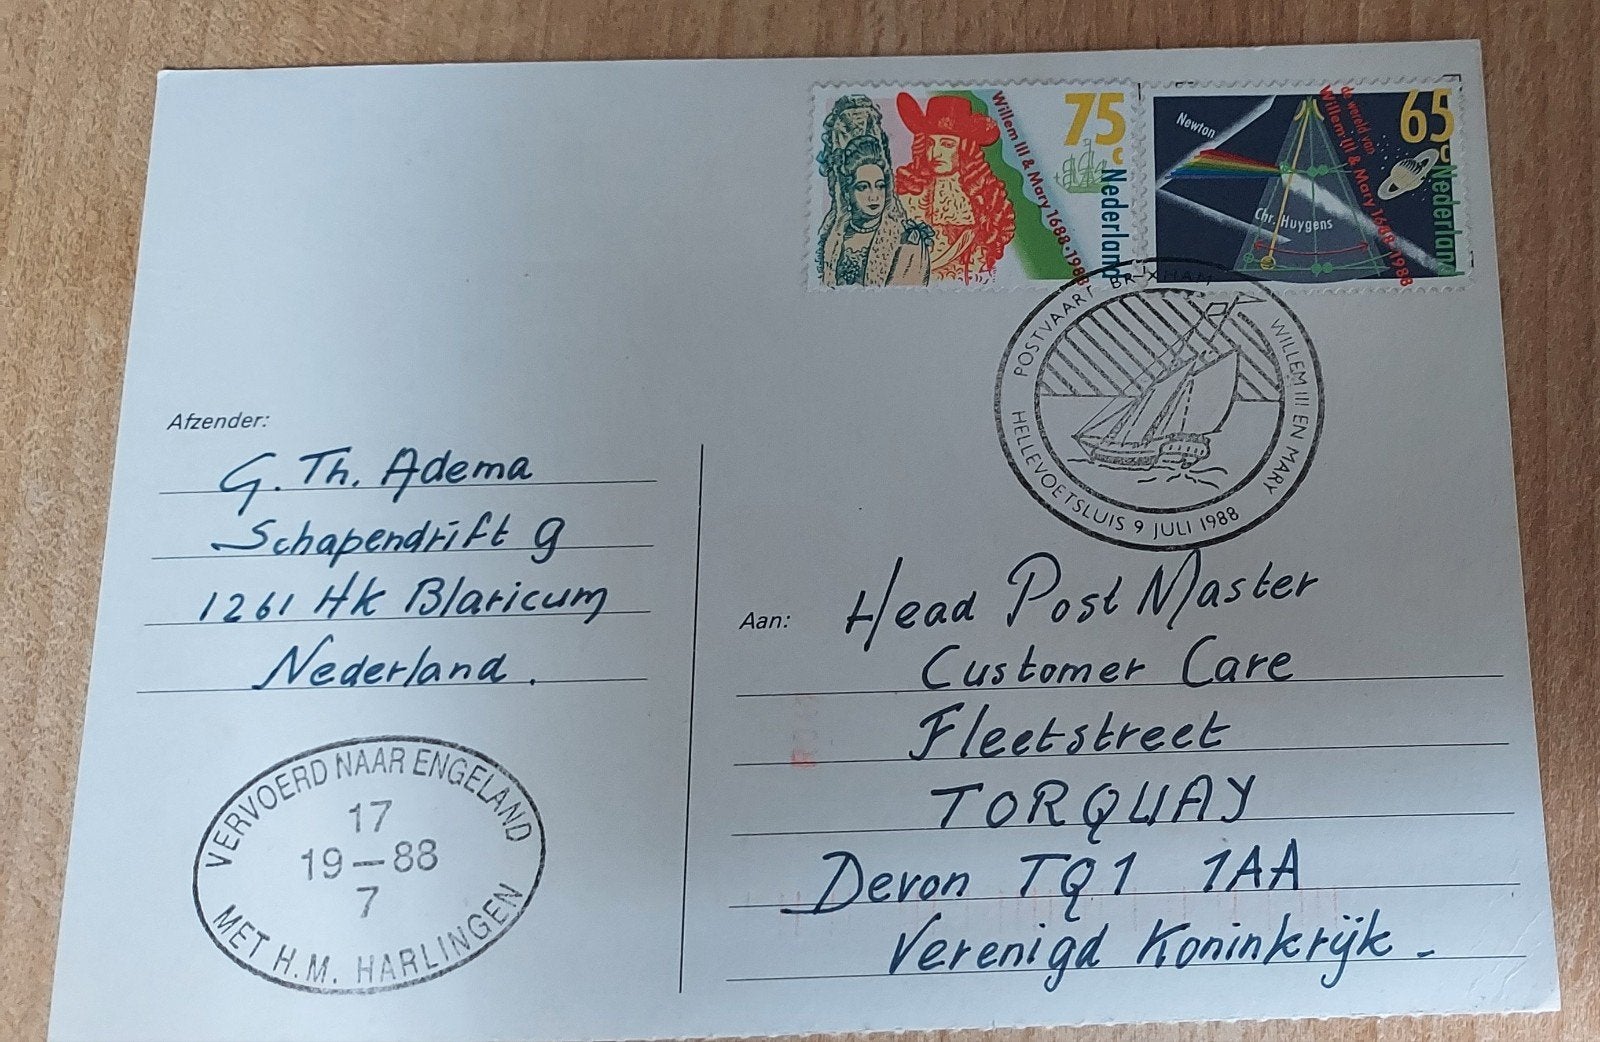 Willem III & Mary 1688-1988
75
c
Nederland
Newton
Chr. Huygens
de wereld van
Willem III & Mary 1688-1988
65
c
Nederland
POSTVAART BRIXHAM
WILLEM III EN MARY
HELLEVOETSLUIS 9 JULI 1988
Afzender:
G. Th. Adema
Schapendrift 9
1261 HK Blaricum
Nederland.
VERVOERD NAAR ENGELAND
17
19-88
7
MET H.M. HARLINGEN
Aan: Head Post Master
Customer Care
Fleetstreet
TORQUAY
Devon TQ1 1AA
Verenigd Koninkrijk -